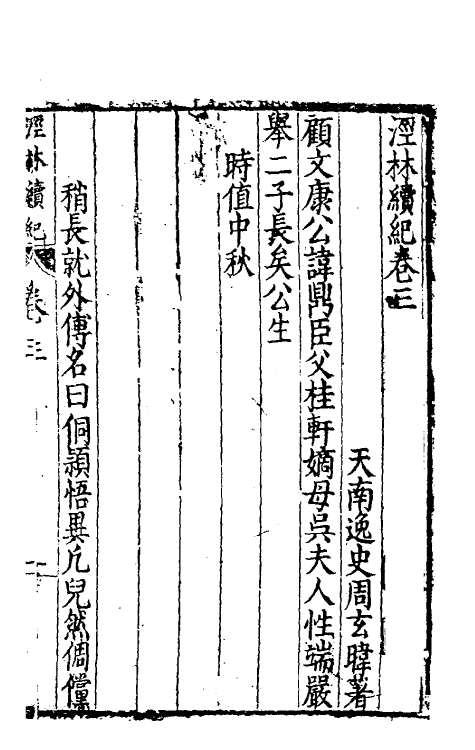 涇林續紀卷三
天南逸史周玄暐著
顧文康公諱鼎臣父桂軒嫡母吳夫人性端嚴
舉二子長矣公生
時值中秋
稍長就外傅名曰侗頴悟異凡兒然倜儻
涇林續紀 卷三